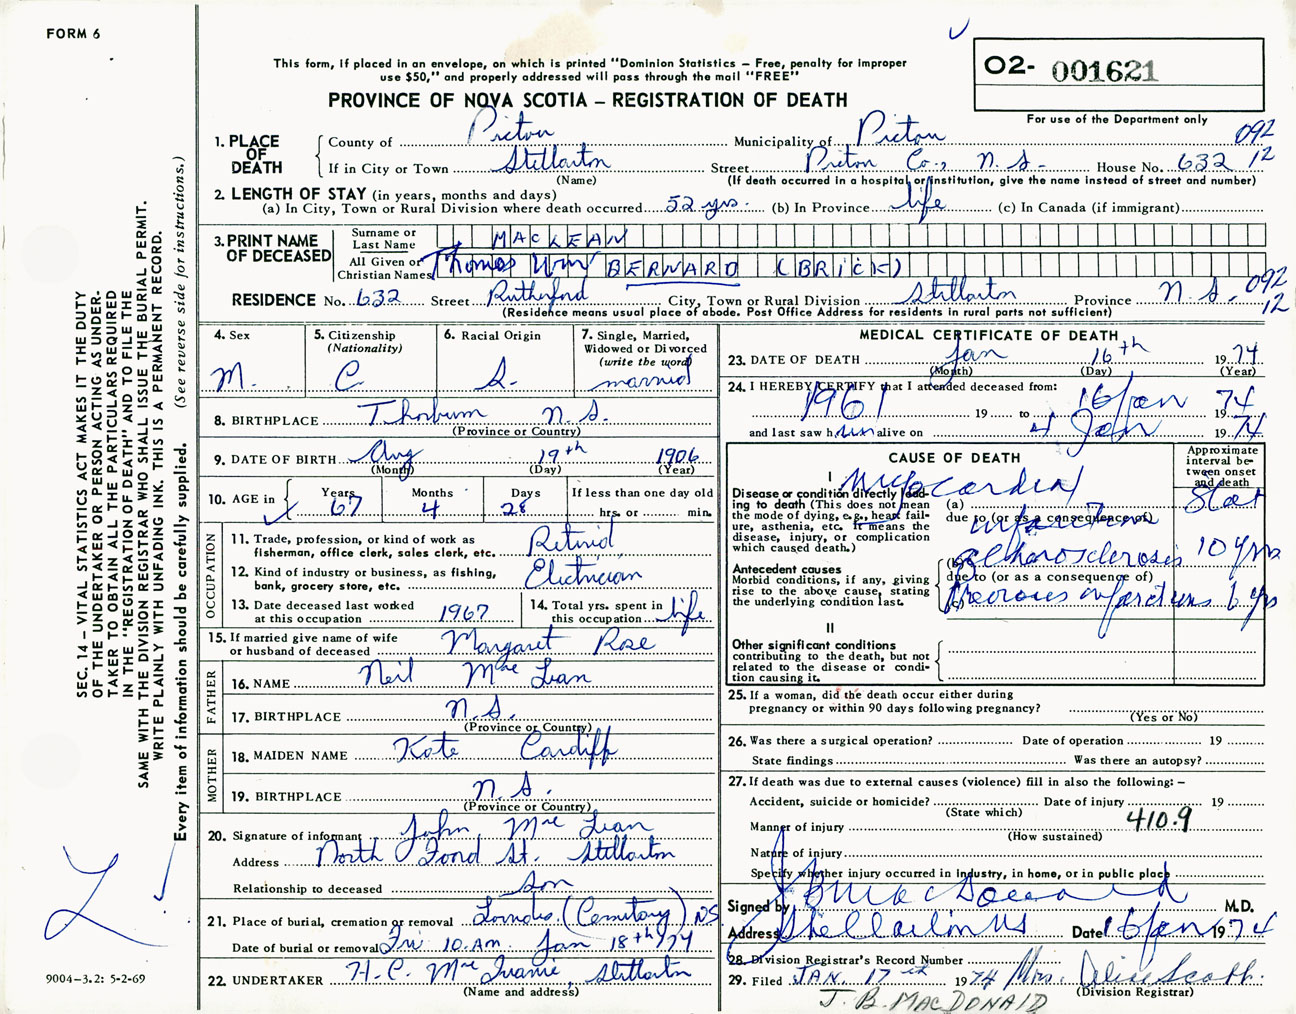 FORM 6
This form, if placed in an envelope, on which is printed "Dominion Statistics – Free, penalty for improper
use $50," and properly addressed will pass through the mail "FREE"
PROVINCE OF NOVA SCOTIA – REGISTRATION OF DEATH
O2- 001621
For use of the Department only
1. PLACE OF DEATH
County of Pictou Municipality of Pictou 092
If in City or Town Stellarton Street Pictou Co., N.S. House No. 632 12
(Name) (If death occurred in a hospital or institution, give the name instead of street and number)
2. LENGTH OF STAY (in years, months and days)
(a) In City, Town or Rural Division where death occurred 52 yrs. (b) In Province life (c) In Canada (if immigrant)
3. PRINT NAME OF DECEASED
Surname or Last Name MACLEAN
All Given or Christian Names Thomas Wm BERNARD (BRICK)
RESIDENCE No. 632 Street Rutherford City, Town or Rural Division Stellarton Province N.S. 092
12
(Residence means usual place of abode. Post Office Address for residents in rural parts not sufficient)
4. Sex M.
5. Citizenship (Nationality) C
6. Racial Origin S.
7. Single, Married, Widowed or Divorced (write the word) married
8. BIRTHPLACE Thorburn N.S.
(Province or Country)
9. DATE OF BIRTH Aug 19th 1906
(Month) (Day) (Year)
10. AGE in Years 67 Months 4 Days 28 If less than one day old hrs. or min.
OCCUPATION
11. Trade, profession, or kind of work as fisherman, office clerk, sales clerk, etc. Retired
12. Kind of industry or business, as fishing, bank, grocery store, etc. Electrician
13. Date deceased last worked at this occupation 1967
14. Total yrs. spent in this occupation life
15. If married give name of wife or husband of deceased Margaret Rose
FATHER
16. NAME Neil Mac Lean
17. BIRTHPLACE N.S.
(Province or Country)
MOTHER
18. MAIDEN NAME Kate Cardiff
19. BIRTHPLACE N.S.
(Province or Country)
20. Signature of informant John Mac Lean
Address North Foord St. Stellarton
Relationship to deceased son
21. Place of burial, cremation or removal Lourdes (Cemetery) NS
Date of burial or removal Fri 10 AM Jan 18th/74
22. UNDERTAKER Stellarton
(Name and address)
MEDICAL CERTIFICATE OF DEATH
23. DATE OF DEATH Jan 16th 1974
(Month) (Day) (Year)
24. I HEREBY CERTIFY that I attended deceased from:
1961 19 to 16 Jan 19 74
and last saw him alive on 4 Jan 19 74
CAUSE OF DEATH
Approximate interval between onset and death
I
Disease or condition directly leading to death (This does not mean the mode of dying, e.g., heart failure, asthenia, etc. It means the disease, injury, or complication which caused death.)
(a) Myocardial infarction Stat
due to (or as a consequence of)
Antecedent causes
Morbid conditions, if any, giving rise to the above cause, stating the underlying condition last.
(b) atherosclerosis 10 yrs
due to (or as a consequence of)
(c) Previous infarctions 6 yrs
II
Other significant conditions
contributing to the death, but not related to the disease or condition causing it.
25. If a woman, did the death occur either during pregnancy or within 90 days following pregnancy?
(Yes or No)
26. Was there a surgical operation? Date of operation 19
State findings Was there an autopsy?
27. If death was due to external causes (violence) fill in also the following: –
Accident, suicide or homicide? Date of injury 19
(State which)
Manner of injury 410.9
(How sustained)
Nature of injury
Specify whether injury occurred in Industry, in home, or in public place
Signed by J B MacDonald M.D.
Address Stellarton NS Date 16 Jan 1974
28. Division Registrar's Record Number
29. Filed JAN. 17th 1974 Mrs. Scott
(Division Registrar)
J. B. MACDONALD
SEC. 14 – VITAL STATISTICS ACT MAKES IT THE DUTY
OF THE UNDERTAKER OR PERSON ACTING AS UNDER-
TAKER TO OBTAIN ALL THE PARTICULARS REQUIRED
IN THE "REGISTRATION OF DEATH" AND TO FILE THE
SAME WITH THE DIVISION REGISTRAR WHO SHALL ISSUE THE BURIAL PERMIT.
WRITE PLAINLY WITH UNFADING INK. THIS IS A PERMANENT RECORD.
Every item of information should be carefully supplied. (See reverse side for instructions.)
9004–3.2: 5-2-69